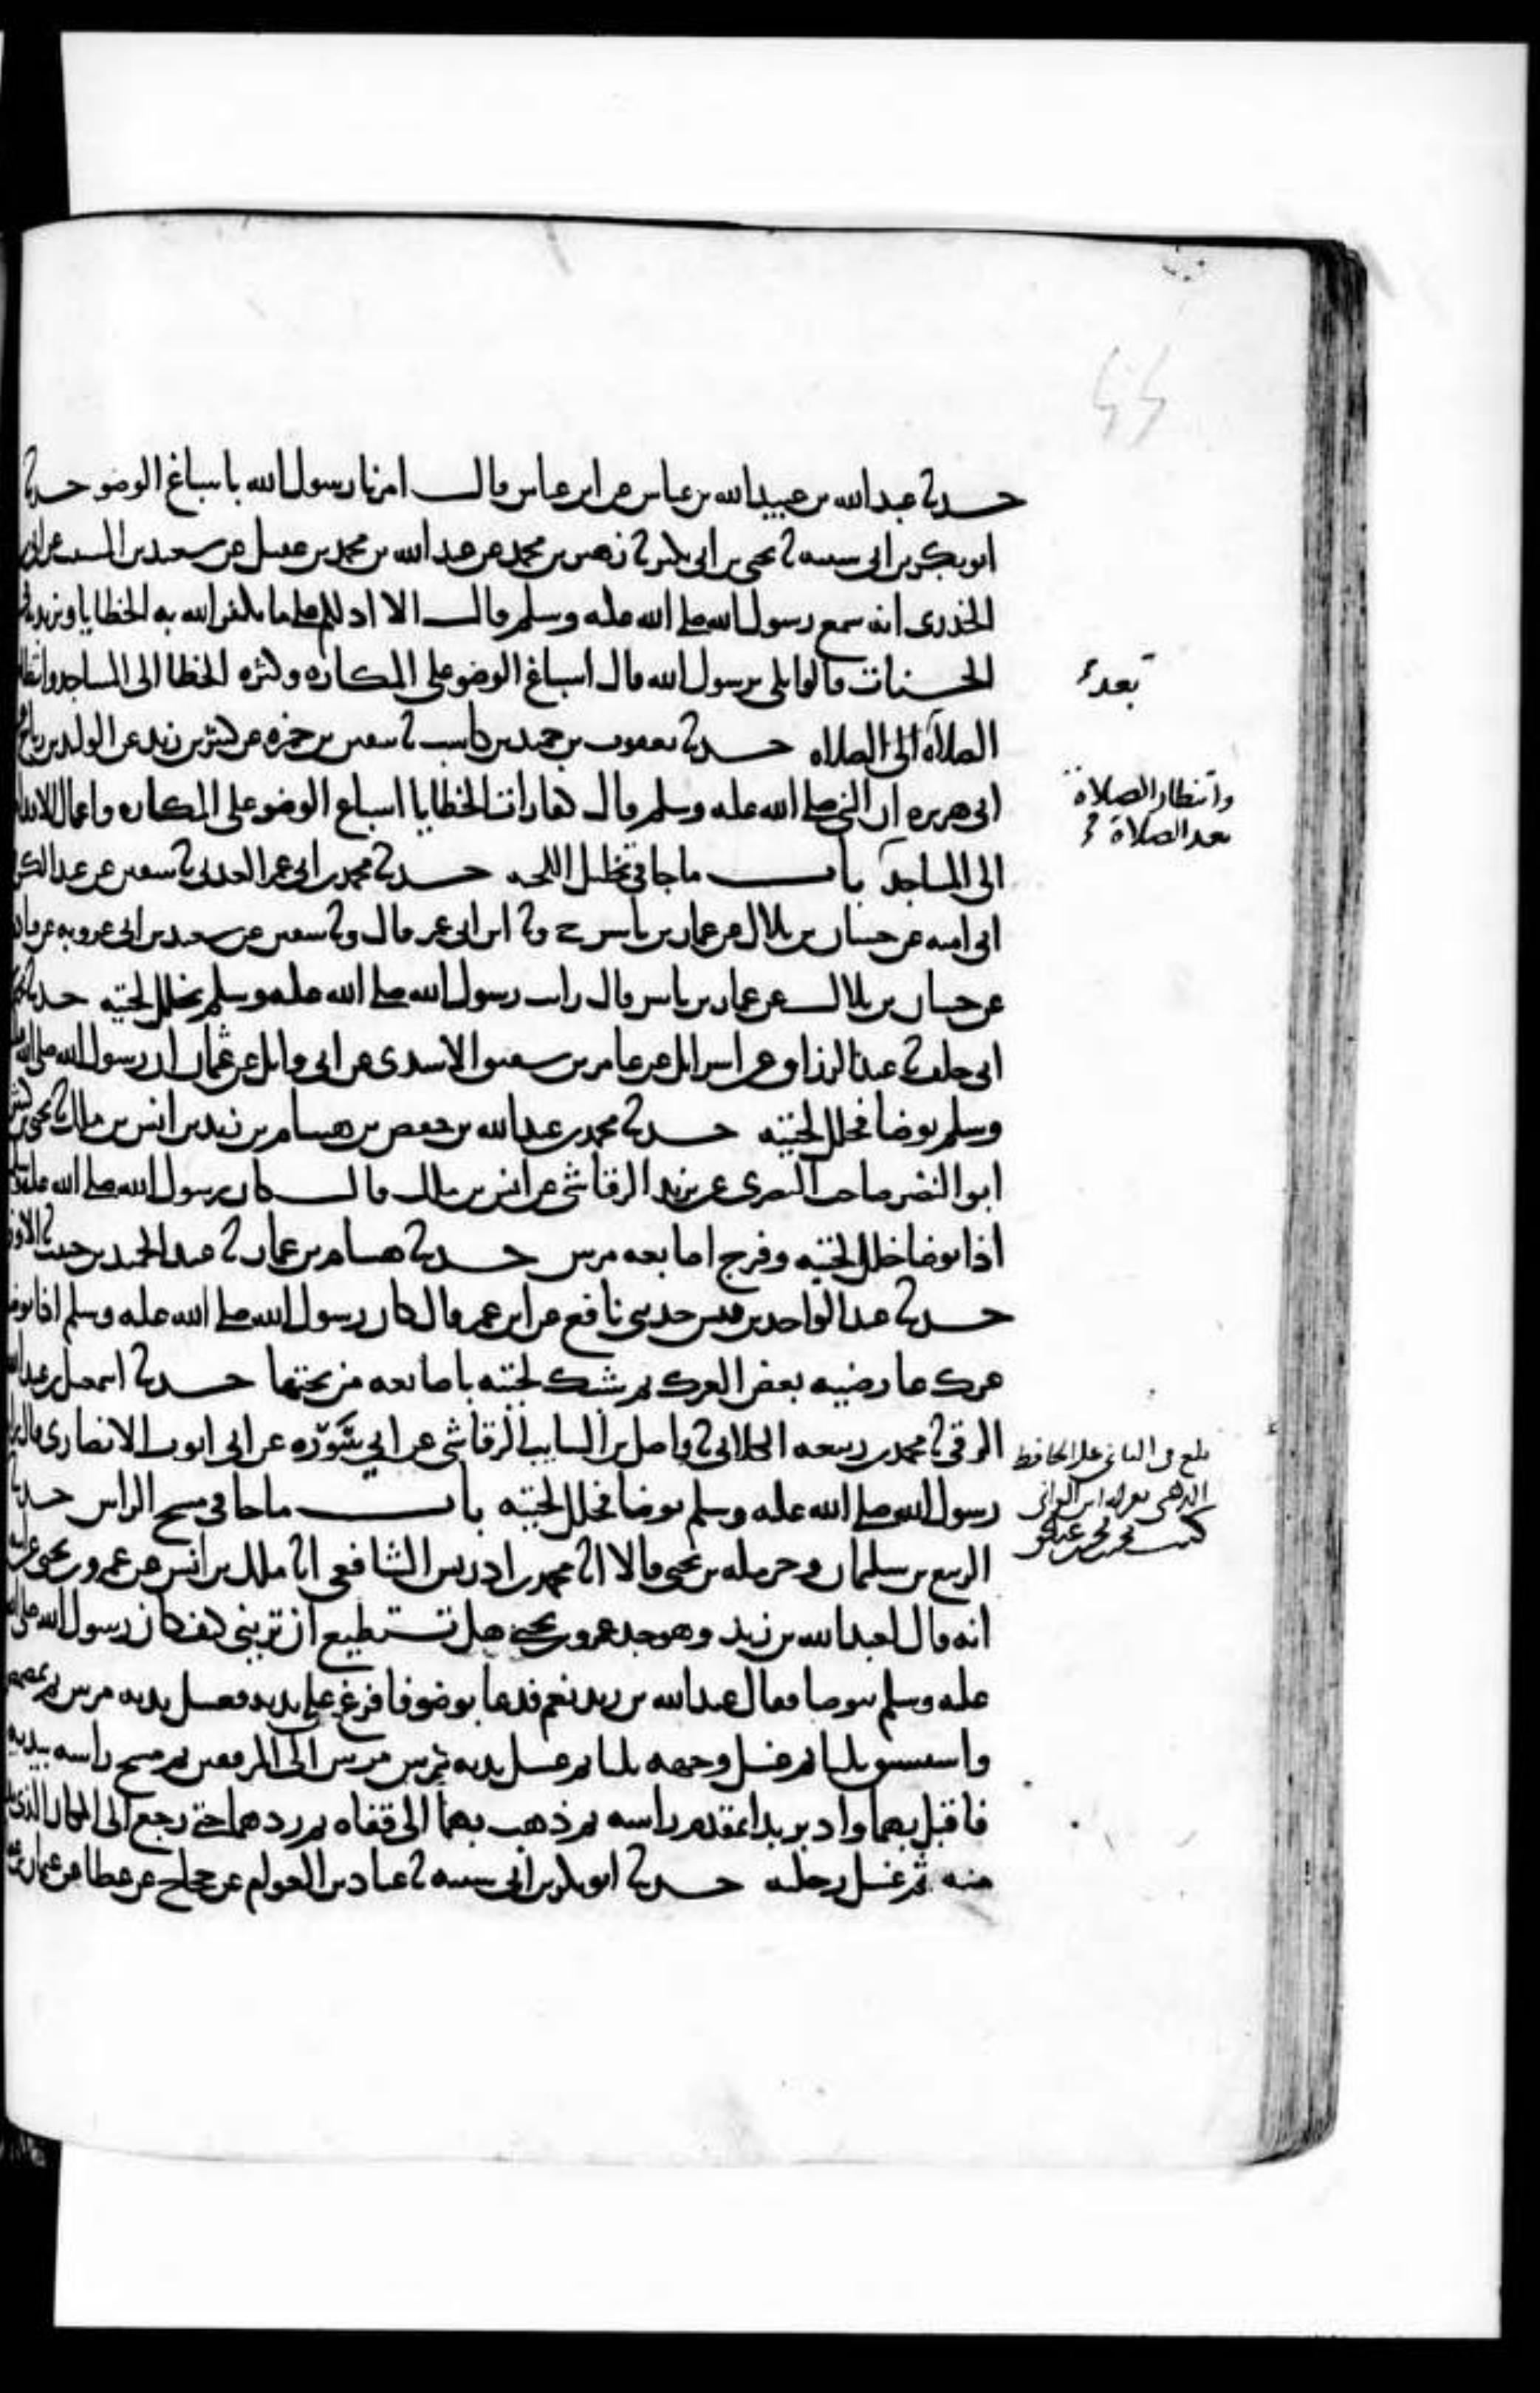 حدثنا عبد الله بن عبيد الله بن عباس عن ابن عباس قال امرنا رسول الله باسباغ الوضو حدثنا
ابو بكر بن ابي شيبه ثنا يحيى بن ابي بكير ثنا زهير بن محمد عن عبد الله بن محمد بن عقيل عن سعيد بن المسيب عن ابي سعيد
الخدري انه سمع رسول الله صلى الله عليه وسلم قال الا ادلكم على ما يكفر الله به الخطايا ويزيد به في
الحسنات قالوا بلى يرسول الله قال اسباغ الوضو على المكاره وكثره الخطا الى المساجد وانتظار
بعد
الصلاة الى الصلاه حدثنا يعقوب بن حميد بن كاسب ثنا سفين بن حمزه عن كثير بن زيد عن الوليد بن رباح عن
ابي هريره ان النبي صلى الله عليه وسلم قال كفارات الخطايا اسباغ الوضو على المكاره واعمال الاقدام
وانتظار الصلاة
بعد الصلاة
الى المساجد باب ما جا في تخليل اللحيه حدثنا محمد بن ابي عمر العدني ثنا سفين عن عبد الكريم
ابي اميه عن حسان بن بلال عن عمار بن ياسر ح وثنا ابن ابي عمر قال وثنا سفين عن سعيد بن ابي عروبه عن قتاده
عن حسان بن بلال عن عمار بن ياسر قال رايت رسول الله صلى الله عليه وسلم يخلل لحيته حدثنا محمد
ابي خلف ثنا عبد الرزاق عن اسرايل عن عامر بن شقيق الاسدي عن ابي وايل عن عثمان ان رسول الله صلى الله عليه
وسلم توضا فخلل لحيته حدثنا محمد بن عبد الله بن حفص بن هشام بن زيد بن انس بن ملك ثنا يحيى بن كثير
ابو النضر صاحب البصري عن يزيد الرقاشي عن انس بن ملك قال كان رسول الله صلى الله عليه وسلم
اذا توضا خلل لحيته وفرج اصابعه مرتين حدثنا هشام بن عمار ثنا عبد الحميد بن حبيب ثنا الاوزاعي
حدثنا عبد الواحد بن قيس حدثني نافع عن ابن عمر قال كان رسول الله صلى الله عليه وسلم اذا توضا
عرك عارضيه بعض العرك ثم شبك لحيته باصابعه من تحتها حدثنا اسمعيل بن عبد الله
الرقي ثنا محمد بن ربيعه الكلابي ثنا واصل بن السايب الرقاشي عن ابي سَوْرَه عن ابي ايوب الانصاري قال رايت
بلغ في الثاني على الحافظ
رسول الله صلى الله عليه وسلم توضا فخلل لحيته باب ما جا في مسح الراس حدثنا
الربيع بن سليمان وحرمله بن يحيى قالا انا محمد بن ادريس الشافعي انا ملك بن انس عن عمرو بن يحيى عن ابيه
انه قال لعبد الله بن زيد وهو جد عمرو بن يحيى هل تستطيع ان تريني كيف كان رسول الله صلى الله
عليه وسلم يتوضا فقال عبد الله بن زيد نعم فدعا بوضو فافرغ على يديه فغسل يديه مرتين ثم تمضمض
واستنثر ثلثا ثم غسل وجهه ثلثا ثم غسل يديه مرتين مرتين الى المرفقين ثم مسح راسه بيديه
فاقبل بهما وادبر بدا بمقدم راسه ثم ذهب بهما الى قفاه ثم ردهما حتى رجع الى المكان الذي بدا
منه ثم غسل رجليه حدثنا ابو بكر بن ابي شيبه ثنا عباد بن العوام عن حجاج عن عطا عن عثمان بن